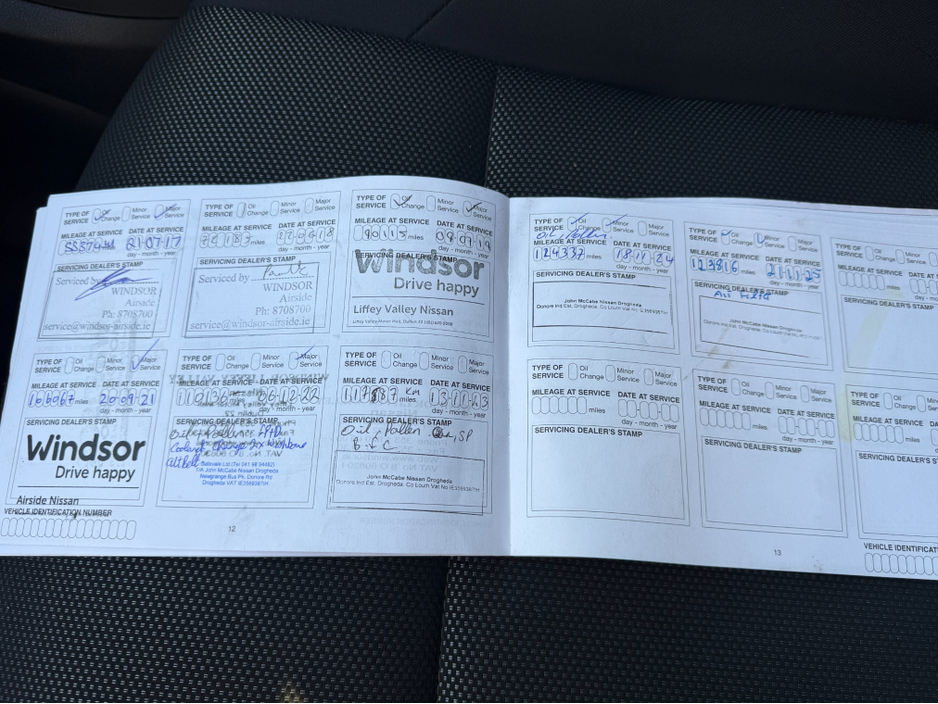 TYPE OF SERVICE Oil Change Minor Service Major Service
MILEAGE AT SERVICE DATE AT SERVICE
21 07 17
day - month - year
SERVICING DEALER'S STAMP
Serviced by
WINDSOR
Airside
Ph: 8708700
service@windsor-airside.ie
TYPE OF SERVICE Oil Change Minor Service Major Service
MILEAGE AT SERVICE DATE AT SERVICE
miles
day - month - year
SERVICING DEALER'S STAMP
Serviced by
WINDSOR
Airside
Ph: 8708700
service@windsor-airside.ie
TYPE OF SERVICE Oil Change Minor Service Major Service
MILEAGE AT SERVICE DATE AT SERVICE
90115 miles 09 07 19
day - month - year
SERVICING DEALER'S STAMP
Windsor
Drive happy
Liffey Valley Nissan
TYPE OF SERVICE Oil Change Minor Service Major Service
MILEAGE AT SERVICE DATE AT SERVICE
106067 miles 20 09 21
day - month - year
SERVICING DEALER'S STAMP
Windsor
Drive happy
Airside Nissan
VEHICLE IDENTIFICATION NUMBER
TYPE OF SERVICE Oil Change Minor Service Major Service
MILEAGE AT SERVICE DATE AT SERVICE
110136 miles 06 12 22
day - month - year
SERVICING DEALER'S STAMP
Coolant
T/A John McCabe Nissan Drogheda
Newgrange Bus Pk, Donore Rd
Drogheda VAT
TYPE OF SERVICE Oil Change Minor Service Major Service
MILEAGE AT SERVICE DATE AT SERVICE
117887 KM 13 11 23
day - month - year
SERVICING DEALER'S STAMP
Oil, Pollen
B + C
John McCabe Nissan Drogheda
Donore Ind Est, Drogheda, Co Louth Vat No
12
TYPE OF SERVICE Oil Change Minor Service Major Service
Oil, Pollen
MILEAGE AT SERVICE DATE AT SERVICE
124337 miles 18 11 24
day - month - year
SERVICING DEALER'S STAMP
John McCabe Nissan Drogheda
Donore Ind Est, Drogheda, Co Louth Vat No
TYPE OF SERVICE Oil Change Minor Service Major Service
MILEAGE AT SERVICE DATE AT SERVICE
miles 21 11 25
day - month - year
SERVICING DEALER'S STAMP
John McCabe Nissan Drogheda
Donore Ind Est, Drogheda, Co Louth Vat No
TYPE OF SERVICE Oil Change
MILEAGE AT SERVICE DATE AT
miles
day
SERVICING DEALER'S STAMP
TYPE OF SERVICE Oil Change Minor Service Major Service
MILEAGE AT SERVICE DATE AT SERVICE
miles
day - month - year
SERVICING DEALER'S STAMP
TYPE OF SERVICE Oil Change Minor Service Major Service
MILEAGE AT SERVICE DATE AT SERVICE
miles
day - month - year
SERVICING DEALER'S STAMP
TYPE OF SERVICE Oil Change
MILEAGE AT SERVICE DATE AT
miles
day
SERVICING DEALER'S STAMP
13
VEHICLE IDENTIFICA